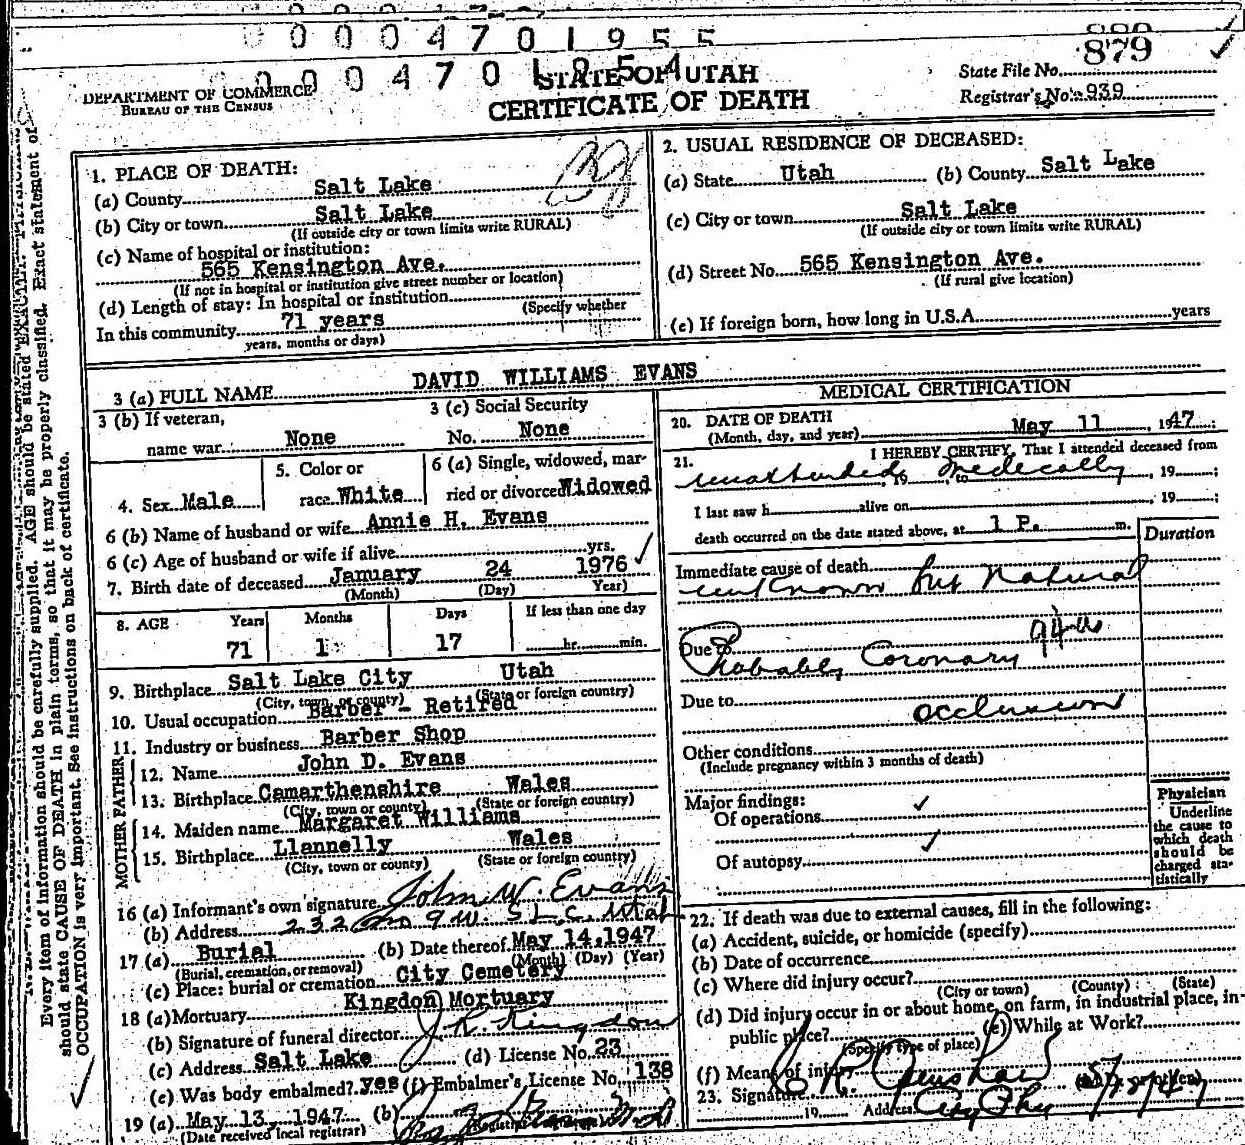 0 0 0 4 7 0 1 9 5 5
0 0 0 4 7 0 1 9 5 4
880
879
STATE OF UTAH
CERTIFICATE OF DEATH
DEPARTMENT OF COMMERCE
BUREAU OF THE CENSUS
State File No.
Registrar's No. 939
1. PLACE OF DEATH:
(a) County Salt Lake
(b) City or town Salt Lake
(If outside city or town limits write RURAL)
(c) Name of hospital or institution:
565 Kensington Ave.
(If not in hospital or institution give street number or location)
(d) Length of stay: In hospital or institution
(Specify whether
In this community 71 years
years, months or days)
2. USUAL RESIDENCE OF DECEASED:
(a) State Utah (b) County Salt Lake
(c) City or town Salt Lake
(If outside city or town limits write RURAL)
(d) Street No. 565 Kensington Ave.
(If rural give location)
(e) If foreign born, how long in U.S.A. years
3 (a) FULL NAME DAVID WILLIAMS EVANS
3 (b) If veteran,
name war None
3 (c) Social Security
No. None
4. Sex Male
5. Color or
race White
6 (a) Single, widowed, mar-
ried or divorced Widowed
6 (b) Name of husband or wife Annie H. Evans
6 (c) Age of husband or wife if alive yrs.
7. Birth date of deceased January 24 1976
(Month) (Day) Year)
8. AGE Years Months Days If less than one day
71 1 17 hr. min.
9. Birthplace Salt Lake City Utah
(City, town, or county) (State or foreign country)
10. Usual occupation Barber - Retired
11. Industry or business Barber Shop
FATHER
12. Name John D. Evans
13. Birthplace Camarthenshire Wales
(City, town or county) (State or foreign country)
MOTHER
14. Maiden name Margaret Williams
15. Birthplace Llannelly Wales
(City, town or county) (State or foreign country)
16 (a) Informant's own signature John W. Evans
(b) Address 232 no 9 W. S.L.C. Utah
17 (a) Burial (b) Date thereof May 14, 1947
(Burial, cremation, or removal) (Month) (Day) (Year)
(c) Place: burial or cremation City Cemetery
18 (a) Mortuary Kingdon Mortuary
(b) Signature of funeral director J. R. Kingdon
(c) Address Salt Lake (d) License No. 23
(e) Was body embalmed? yes (f) Embalmer's License No. 138
19 (a) May 13, 1947 (b)
(Date received local registrar)
MEDICAL CERTIFICATION
20. DATE OF DEATH
(Month, day, and year) May 11, 1947
21. I HEREBY CERTIFY, That I attended deceased from
unattended, 19 , to medically, 19 ;
I last saw h alive on , 19 ;
death occurred on the date stated above, at 1 P. m.
Duration
Immediate cause of death
unknown but natural
Due to
Probably Coronary
Due to
occlusion
Other conditions
(Include pregnancy within 3 months of death)
Major findings:
Of operations
Of autopsy
Physician
Underline
the cause to
which death
should be
charged sta-
tistically
22. If death was due to external causes, fill in the following:
(a) Accident, suicide, or homicide (specify)
(b) Date of occurrence
(c) Where did injury occur?
(City or town) (County) (State)
(d) Did injury occur in or about home, on farm, in industrial place, in
public place? (e) While at Work?
(Specify type of place)
(f) Means of injury
23. Signature
19 Address City Phy
Every item of information should be carefully supplied. AGE should be stated EXACTLY. Exact statement of
should state CAUSE OF DEATH in plain terms, so that it may be properly classified.
OCCUPATION is very important. See instructions on back of certificate.